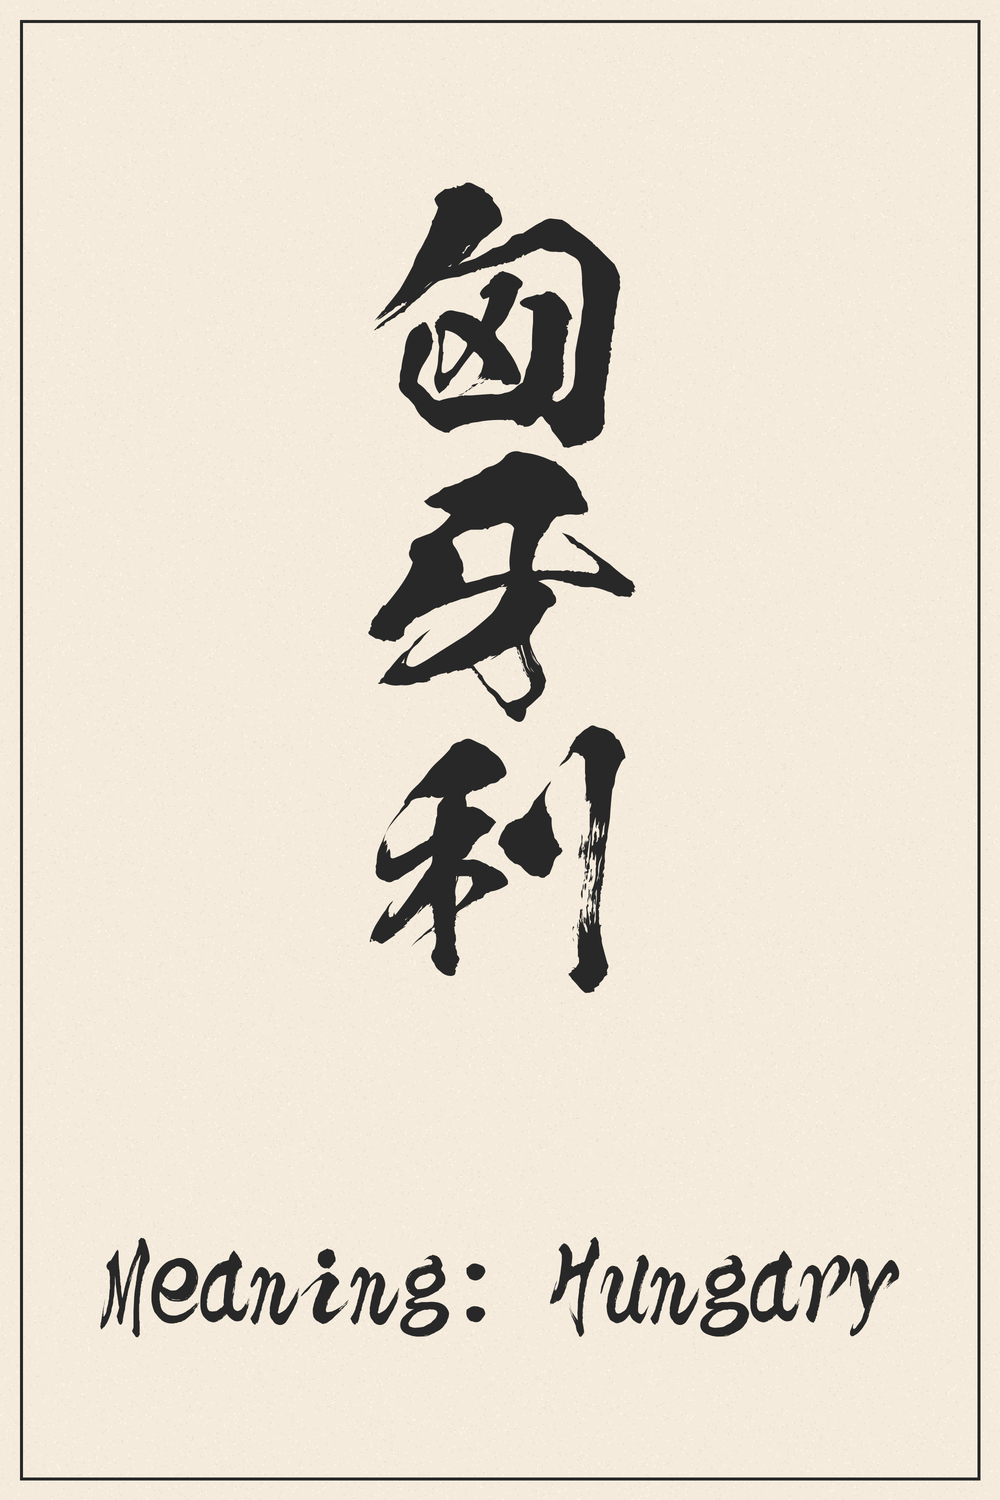 匈牙利
Meaning: Hungary